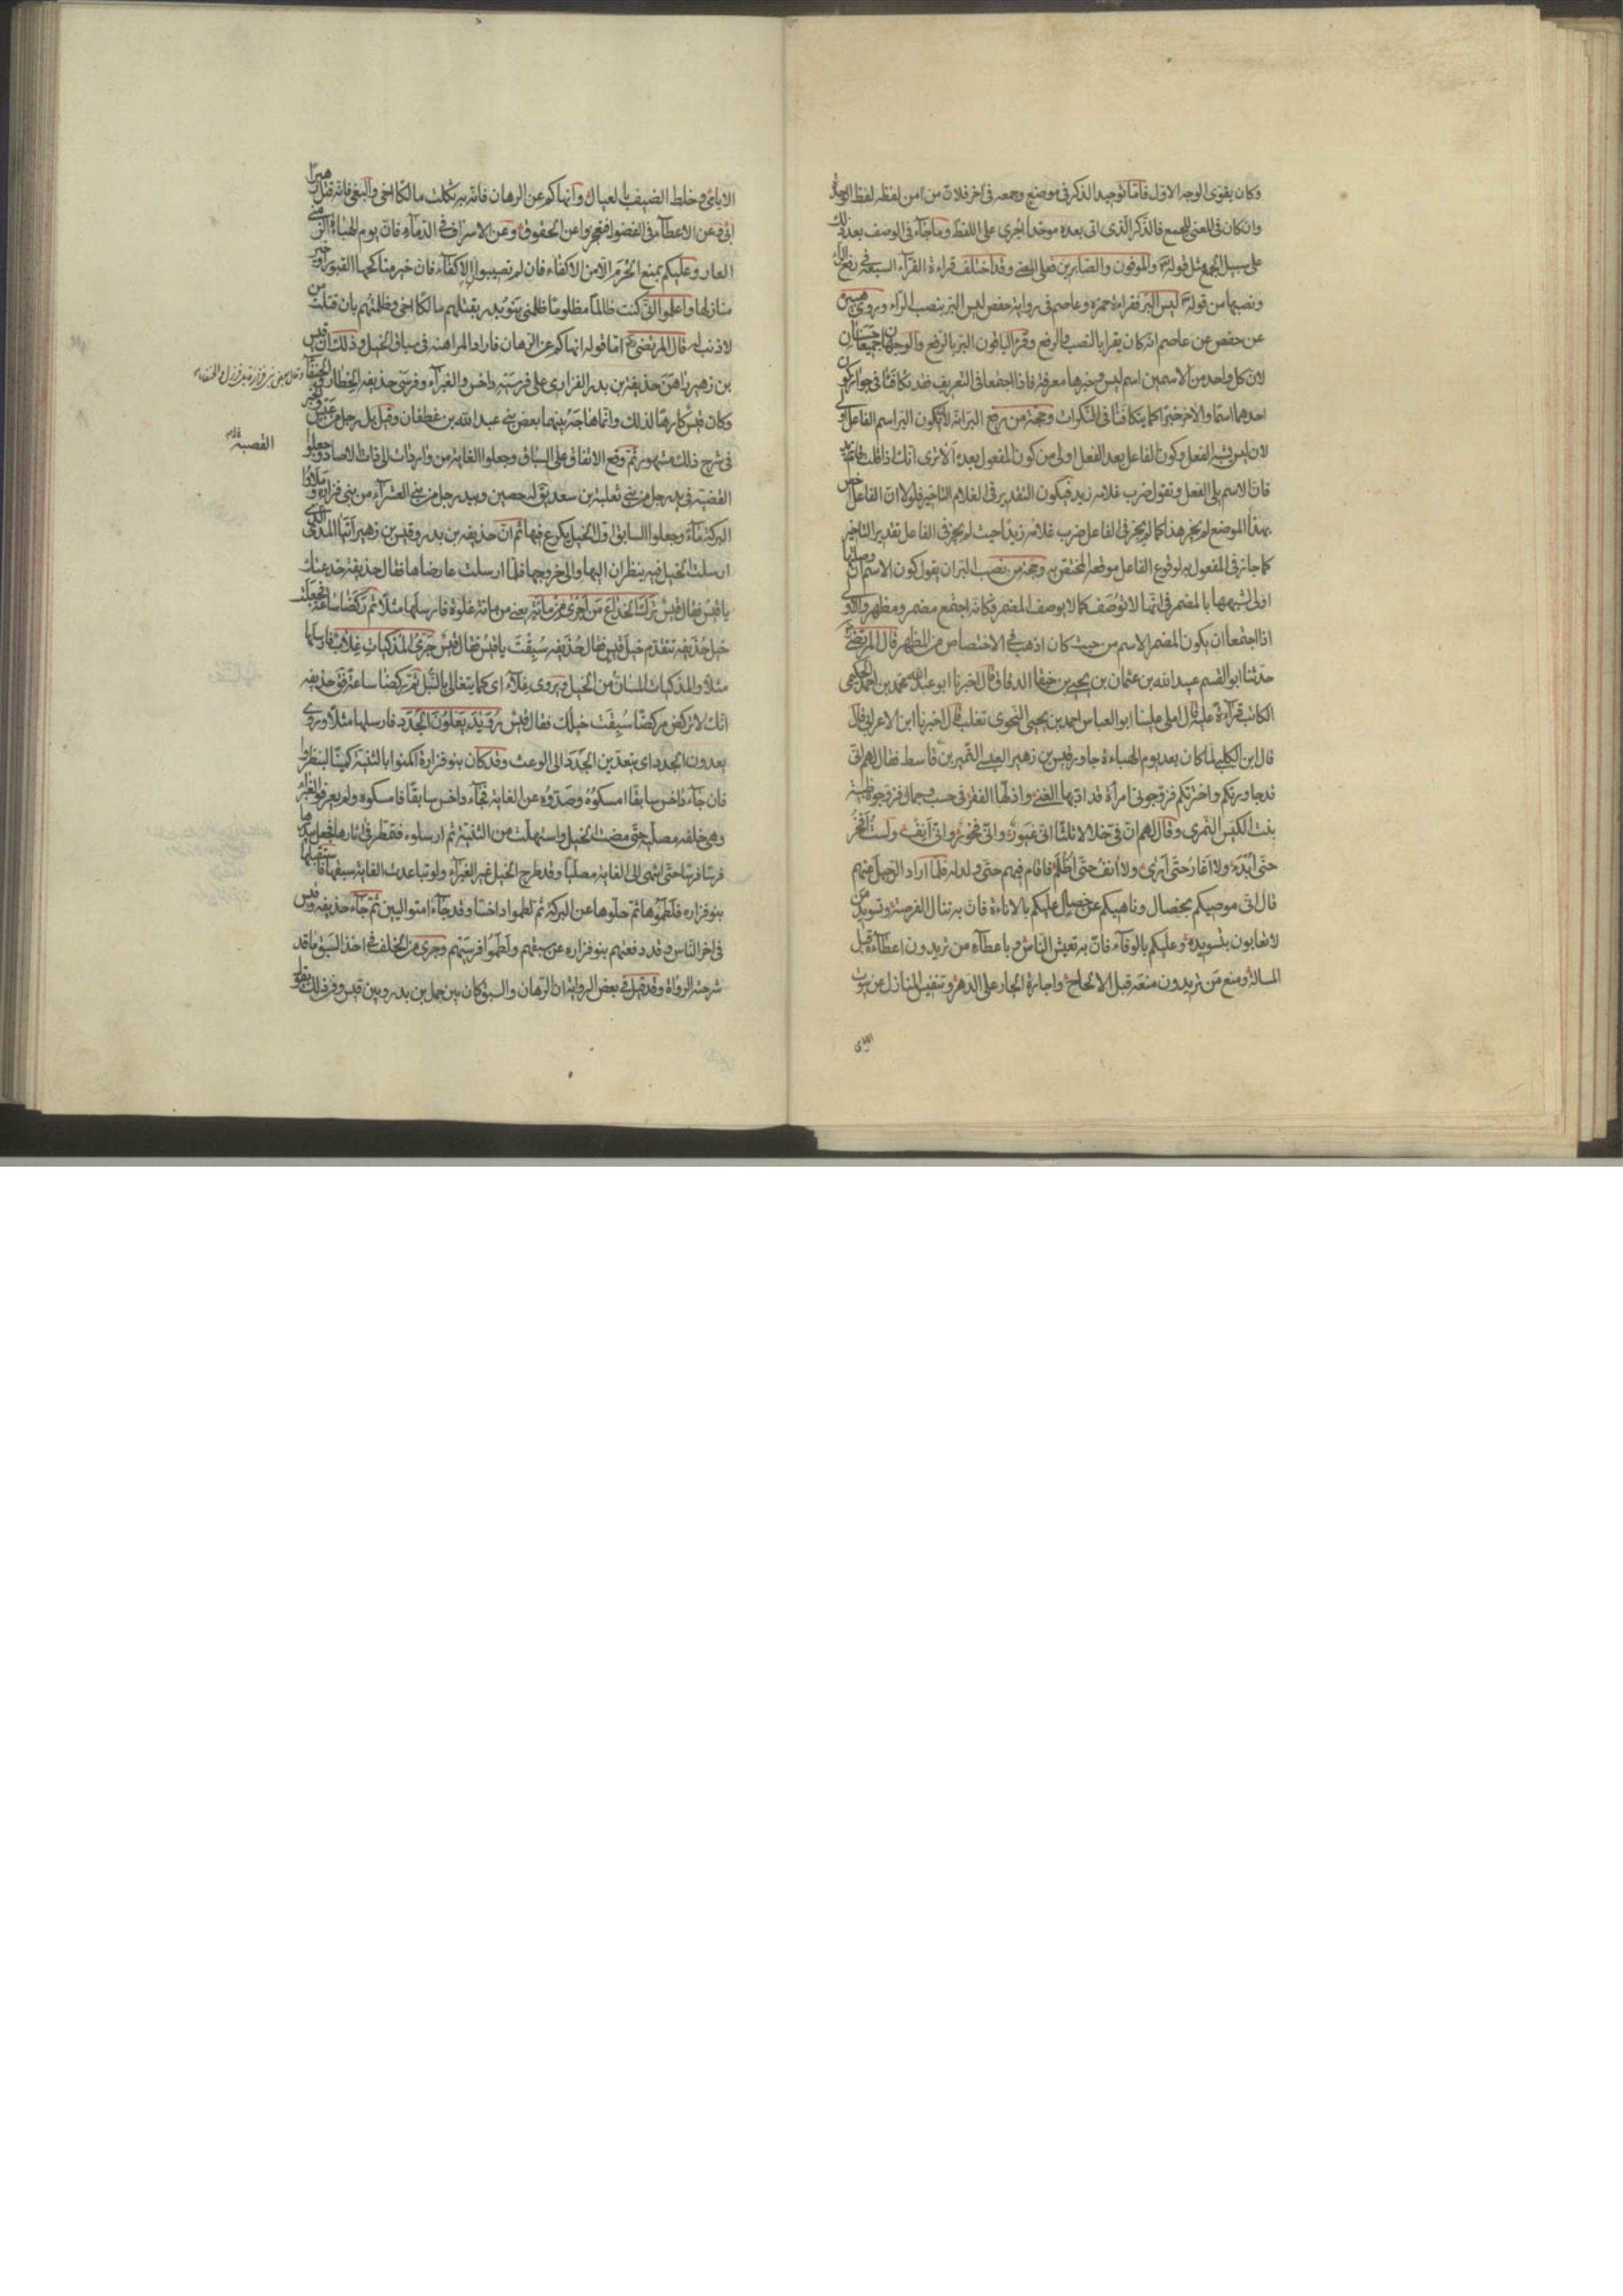 وكان يقوى الوجه الاول فاما توحيد الذكر في موضع وجمعه في اخر فلان من امن لفظه لفظ الوحدة
وان كان في المعنى للجمع فالذكر الذى اتى بعده موحدا اجرى على اللفظ وما جاء في الوصف بعد ذلك
على سبيل الجمع مثل قوله والموفون والصابرين فعلى المعنى وقد اختلف قراءة القراء السبعة في رفع الراء
ونصبها من قوله ليس البر فقراءة حمزه وعاصم في رواية حفص ليس البر بنصب الراء وروى هبيرة
عن حفص عن عاصم انه كان يقرا بالنصب والرفع وقرا الباقون البر بالرفع والوجهان جميعا حسنان
لان كل واحد من الاسمين اسم ليس وخبرها معرفة فاذا اجتمعا في التعريف فقد تكافئا في جواز كون
احدهما اسما والاخر خبرا كما يتكافئا في النكرات وحجة من رفع البر انه لان يكون البر اسم الفاعل اولى
لان ليس يشبه الفعل وكون الفاعل بعد الفعل اولى من كون المفعول بعده الا ترى انك اذا قلت قام زيد
فان الاسم يلى الفعل وتقول ضرب غلامه زيد فيكون التقدير في الغلام التاخير فلولا ان الفاعل اخص
بهذا الموضع لم يجز هذا كما لم يجز في الفاعل ضرب غلامه زيدا حيث لم يجز في الفاعل تقدير التاخير
كما جاز في المفعول به لوقوع الفاعل موقعه المختص به وحجة من نصب البر ان يقول كون الاسم ان وصلتها
اولى لشبهها بالمضمر في انها لا توصف كما لا يوصف المضمر فكانه اجتمع مضمر ومظهر والاولى
اذا اجتمعا ان يكون المضمر الاسم من حيث كان اذهب في الاختصاص من المظهر قال المرتضى
حدثنا ابو القسم عبيد الله بن عثمان بن يحيى بن جنيقا الدقاق قال اخبرنا ابو عبد الله محمد بن احمد الحكيمى
الكاتب قراءة عليه قال املى علينا ابو العباس احمد بن يحيى النحوى ثعلب قال اخبرنا ابن الاعرابى قال
قال ابن الكلبى لما كان بعد يوم الهباءة جاور قيس بن زهير العبسى النمر بن قاسط فقال لهم انى
قد جاورتكم واخترتكم فزوجونى امراة قد ادبها الغنى واذلها الفقر في حسب وجمال فزوجوه ظبية
بنت الكيس النمرى وقال لهم ان في خلالا ثلثا انى غيور وانى فخور وانى آنف ولست افخر
حتى ابتده ولا اغار حتى ارى ولا آنف حتى اظلم فاقام فيهم حتى ولد له فلما اراد الرحيل عنهم
قال انى موصيكم بخصال وناهيكم عن خصال عليكم بالاناءة فان به تنال الفرصة وتسويد من
لا تعابون بتسويده وعليكم بالوفاء فان به تعيش الناس وباعطاء من تريدون اعطاءه قبل
المسالة ومنع من تريدون منعه قبل الالحاح واجارة الجار على الدهر وتنفيس المنازل عن بيوت
الايامى
الايامى وخلط الضيف بالعيال وانهاكم عن الرهان فانه به ثكلت مالكا اخى والبغى فانه قتل زهيرا
ابى وعن الاعطاء في الفضول فتعجزوا عن الحقوق وعن الاسراف في الدماء فان يوم الهباءة الزمنى
العار وعليكم بمنع الحرم الا من الاكفاء فان لم تصيبوا لها الاكفاء فان خير مناكحها القبور او خير
منازلها واعلموا انى كنت ظالما مظلوما ظلمنى بنو بدر بقتلهم مالكا اخى وظلمتهم بان قتلت من
لا ذنب له قال المرتضى اما قوله انهاكم عن الرهان فاراد المراهنة في سباق الخيل وذلك ان قيس
بن زهير راهن حذيفة بن بدر الفزارى على فرسيه داحس والغبراء وفرسى حذيفة الخطار والحنفاء
وقال بعض بنى فزاره قرزل والحنفاء
وكان قيس كارها لذلك وانما هاجه بينهما بعض بنى عبد الله بن غطفان وقيل بل رجل من عبس وخبر
في شرح ذلك مشهور ثم وقع الاتفاق على السباق وجعلوا الغاية من واردات الى ذات الاصاد وجعلوا
القصبة
القصبة في يد رجل من بنى ثعلبة بن سعد يق له حصين وبيد رجل من بنى العشراء من بنى فزاره وملاوا
البركة ماء وجعلوا السابق اول الخيل يكرع فيها ثم ان حذيفة بن بدر وقيس بن زهير اتيا المدى الذى
ارسلت الخيل فيه ينظران اليها والى خروجها فلما ارسلت عارضاها فقال حذيفة خدعتك
يا قيس فقال قيس ترك الخداع من اجرى من مائة يعنى من مائة غلوة فارسلها مثلا ثم ركضا ساعة فجعلت
خيل حذيفة تتقدم خيل قيس فقال حذيفه سبقت يا قيس فقال قيس جرى المذكيات غلاب فارسلها
مثلا والمذكيات المسان من الخيل ويروى غلاء اى كما يتغالى بالنبل ثم ركضا ساعة فق حذيفه
انك لا تركض مركضا سبقت خيلك فقال قيس رويد يعلون الجدد فارسلها مثلا وروى
يعدون الجدد اى يتعدين الجدد الى الوعث وقد كان بنو فزارة اكمنوا بالثنية كمينا لينظروا
فان جاء داحس سابقا امسكوه وصدوه عن الغاية فجاء داحس سابقا فامسكوه ولم يعرفوا الغبراء
وهى خلفه مصلية حتى مضت الخيل واسهلت من الثنية ثم ارسلوه فتمطر في اثارها فجعل يبدرها
فرسا فرسا حتى انتهى الى الغاية مصليا وقد طرح الخيل غير الغبراء ولو تباعدت الغاية سبقها فاستقبلها
بنو فزاره فلطموها ثم حلوها عن البركة ثم لطموا داحسا وقد جاءا متواليين ثم جاء حذيفه وقيس
في اخر الناس وقد دفعتهم بنو فزاره عن سبقهم ولطموا فرسيهم وجرى من الخلف في اخذ السبق ما قد
شرحته الرواة وقد قيل في بعض الرواية ان الرهان والسبق كان بين حمل بن بدر وبين قيس وفى ذلك يقول